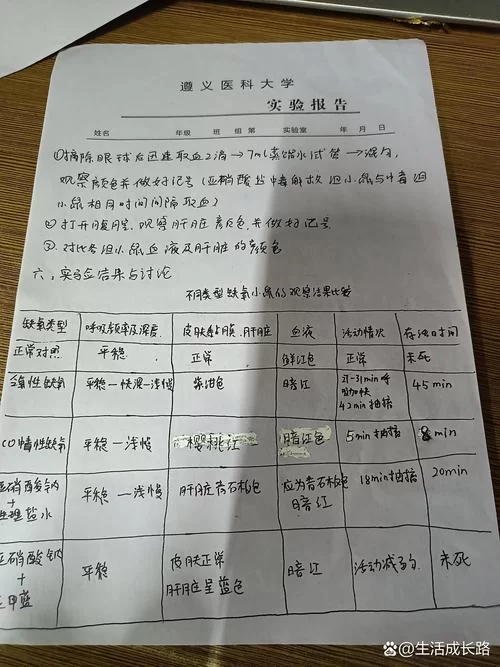 遵义医科大学
实验报告
姓名 年级 班 组 第 实验室 年 月 日
①摘除眼球后迅速取血2滴→7ml蒸馏水试管→混匀,
观察颜色并做好记号(亚硝酸盐中毒解救组小鼠与中毒组
小鼠相同时间间隔取血)
②打开腹腔,观察肝脏颜色,并做好记号
③对比各组小鼠血液及肝脏的颜色
六、实验结果与讨论
不同类型缺氧小鼠的观察结果比较
缺氧类型 呼吸频率及深度 皮肤粘膜、肝脏 血液 活动情况 存活时间
正常对照 平稳 正常 鲜红色 正常 未死
性缺氧 平稳—快深—浅慢 紫绀色 暗红 21-31min呼
吸加快
42min抽搐 45min
CO中毒性缺氧 平稳—浅慢 樱桃红 暗红色 5min抽搐 8min
亚硝酸钠
+
生理盐水 平稳—浅慢 肝脏青石板色 应为青石板色
暗红 18min抽搐 20min
亚硝酸钠
+
亚甲蓝 平稳 皮肤正常
肝脏呈蓝色 暗红 活动减弱 未死
@生活成长路